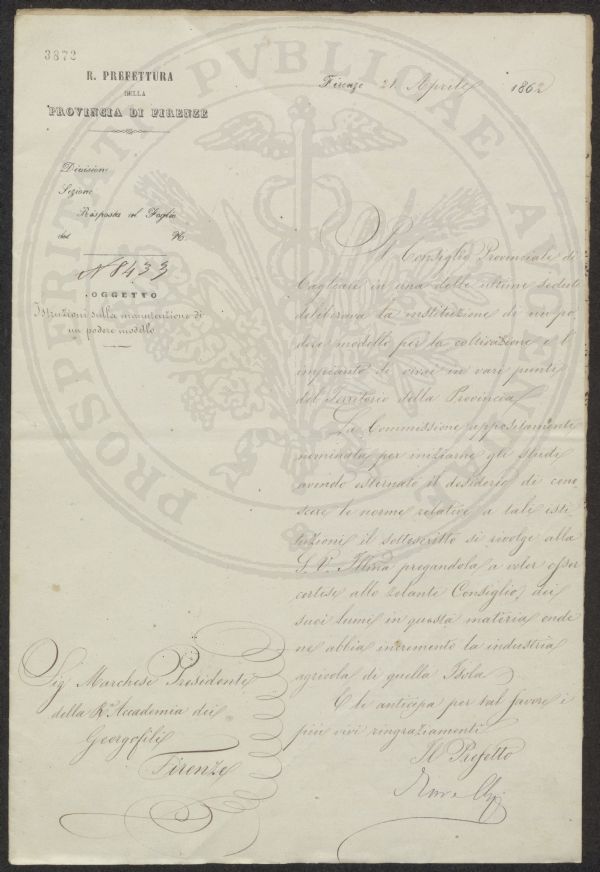 3872
R. PREFETTURA
DELLA
PROVINCIA DI FIRENZE
Firenze 21 Aprile 1862
Divisione
Sezione
Risposta al Foglio
del N.
N 8433
OGGETTO
Istruzioni sulla manutenzione di
un podere modello
Il Consiglio Provinciale di
Cagliari in una delle ultime sedute
deliberava la instituzione di un po
dere modello per la coltivazione e l'
impianto di vivai in vari punti
del Territorio della Provincia
La Commissione appositamente
nominata per iniziarne gli studi
avendo esternato il desiderio di cono
scere le norme relative a tali isti
tuzioni il sottoscritto si rivolge alla
S. V. Illma pregandola a voler esser
cortese allo zelante Consiglio, dei
suoi lumi in questa materia onde
ne abbia incremento la industria
agricola di quella Isola
E le anticipa per tal favore i
più vivi ringraziamenti
Il Prefetto
Sig Marchese Presidente
della Rle Accademia dei
Georgofili
Firenze
PROSPERITATI PVBLICAE AVGENDAE